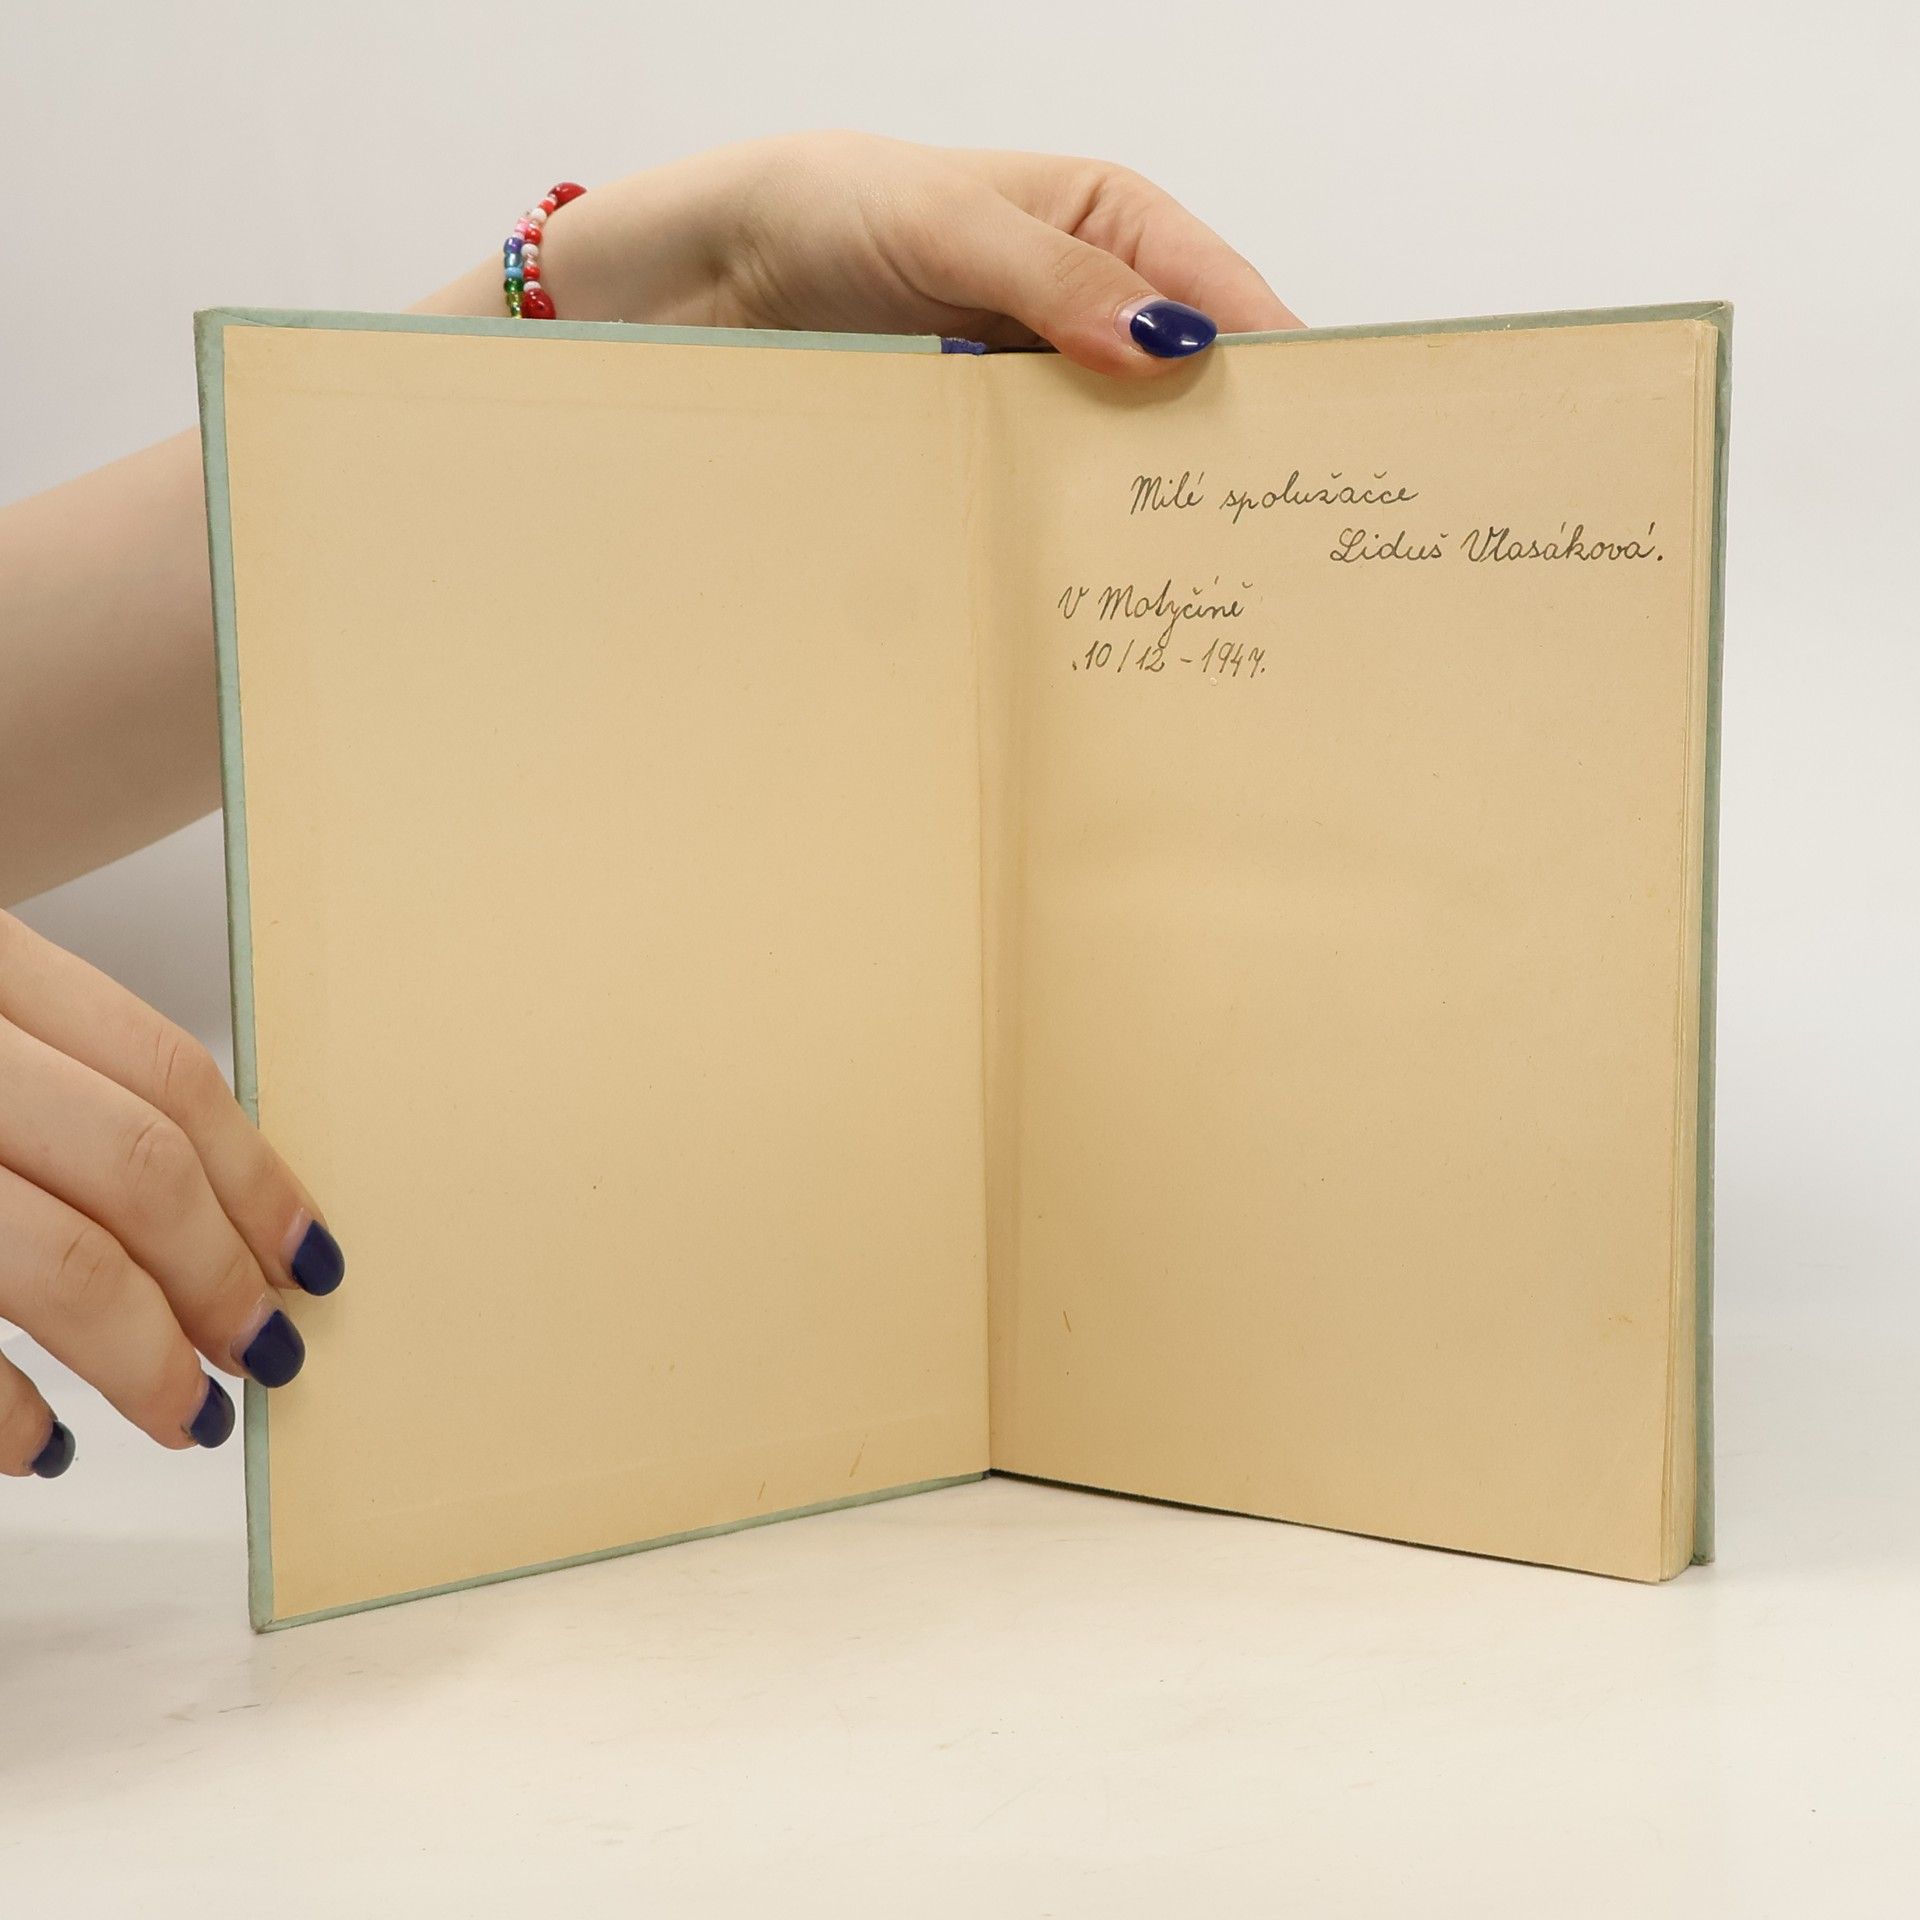 Milé spolužačce
Liduš Vlasáková.
V Motyčíně
10/12 - 1947.